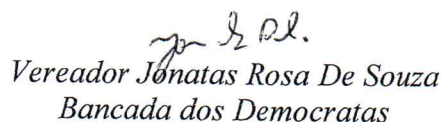 Vereador Jonatas Rosa De Souza
Bancada dos Democratas